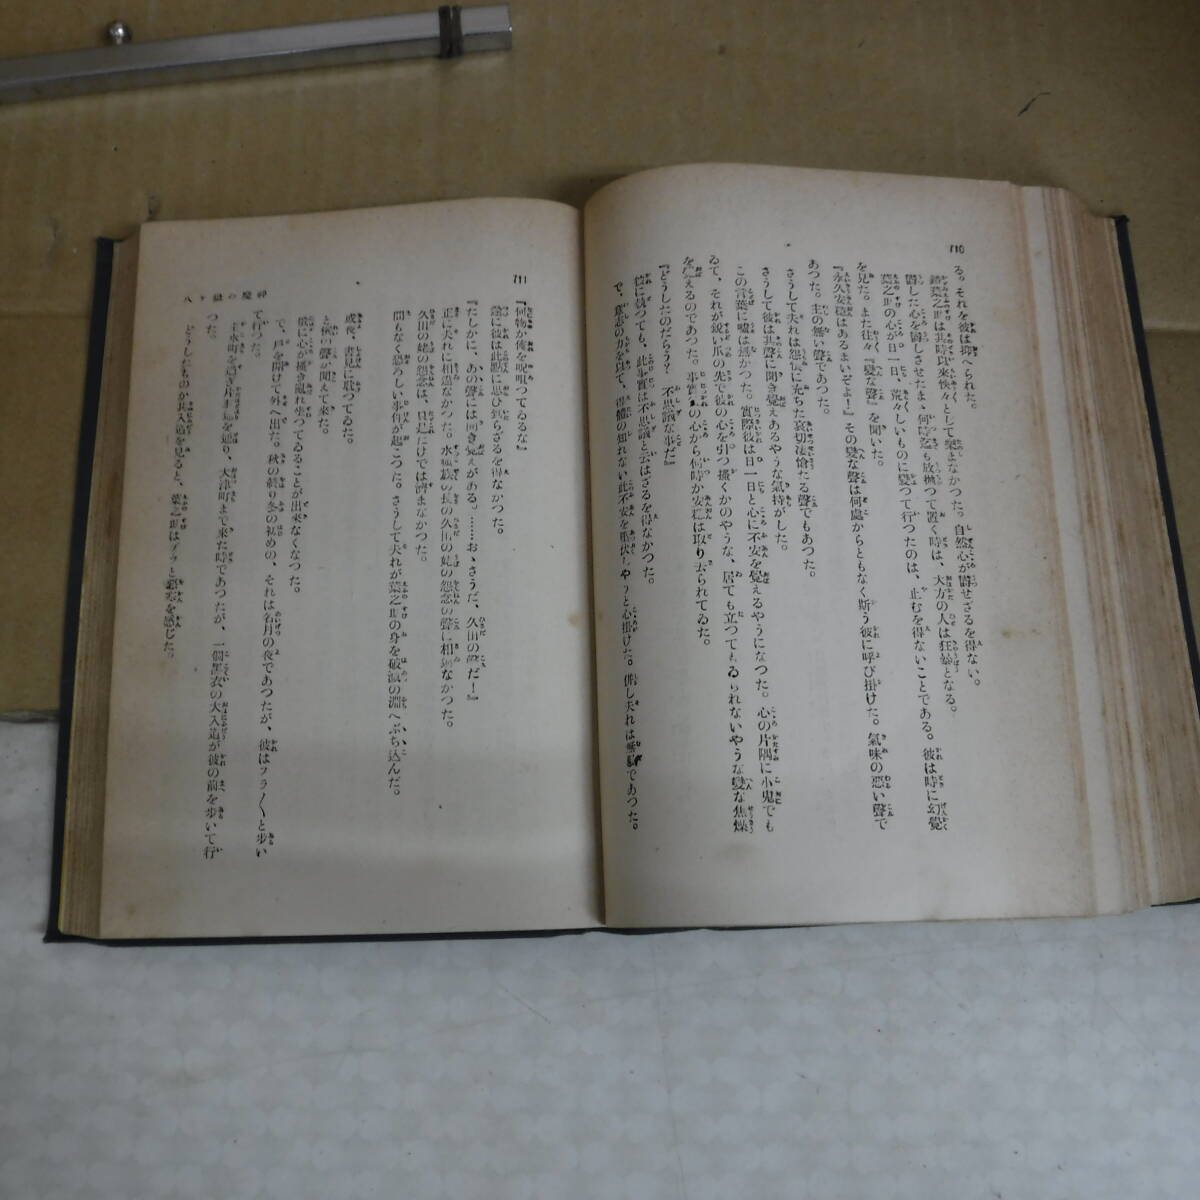 710
る。それを彼は抑へられた。
鏡葉之助は其時以来怏々として楽まなかつた。自然心が鬱せざるを得ない。
鬱した心を鬱しさせたまゝ何時迄も放抛つて置く時は、大方の人は狂暴となる。
葉之助の心が日一日、荒々しいものに變つて行つたのは、止むを得ないことである。彼は時に幻覺
を見た。また往々『變な聲』を聞いた。
『永久安穏はあるまいぞよ!』その變な聲は何處からともなく斯う彼に呼び掛けた。氣味の悪い聲で
あつた。主の無い聲であつた。
さうして夫れは怨恨に充ちた哀切凄愴たる聲でもあつた。
さうして彼は其聲に聞き覺えあるやうな氣持がした。
この言葉に嘘は無かつた。實際彼は日一日と心に不安を覺えるやうになつた。心の片隅に小鬼でも
ゐて、それが鋭い爪の先で彼の心を引つ搔くかのやうな、居ても立つてもゐられないやうな變な焦燥
を覺えるのであつた。事實彼の心から何時か安穏は取り去られてゐた。
『どうしたのだらう? 不思議な事だ』
彼に執つても、此事實は不思議と云はざるを得なかつた。
で、意志の力を以て、得體の知れない此不安を壓伏しやうと心掛けた。併し夫れは無駄であつた。
711
『何物か俺を呪咀つてゐるな』
遂に彼は此點に思ひ到らざるを得なかつた。
『たしかに、あの聲には聞き覺えがある。……おゝさうだ、久田の聲だ!』
正に夫れに相違なかつた。水狐族の長の久田の姥の怨念の聲に相違なかつた。
久田の姥の怨念は、只是だけでは濟まなかつた。
間もなく恐ろしい事件が起こつた。さうして夫れが葉之助の身を破滅の淵へぶち込んだ。
或夜、書見に耽つてゐた。
と例の聲が聞えて来た。
俄に心が搔き亂れ坐つてゐることが出来なくなつた。
で、戸を開けて外へ出た。秋の終り冬の初めの、それは名月の夜であつたが、彼はフラ〱と歩い
て行つた。
主水町を過ぎ片羽通を通り、大津町まで来た時であつたが、一個黒衣の大入道が彼の前を歩いて行
つた。
どうしたものか其入道を見ると、葉之助はゾツと悪寒を感じた。
八ヶ嶽の魔神